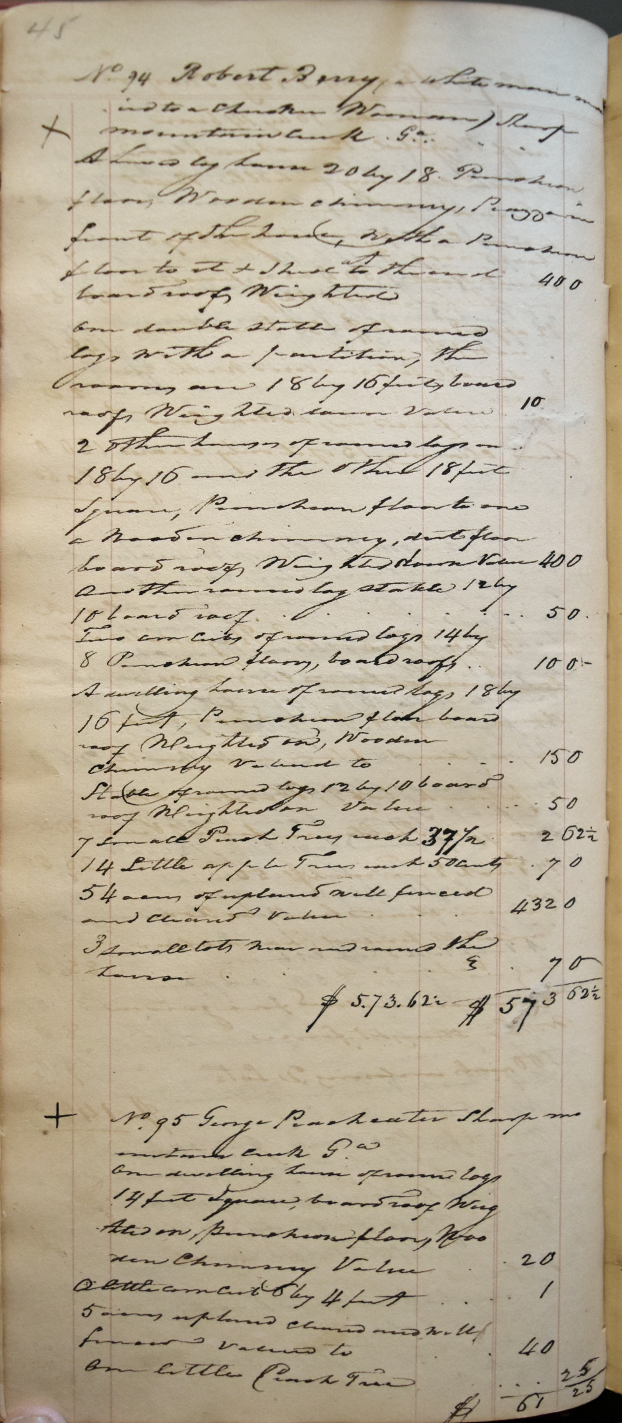 45
No 94 Robert Berry (a white man ma
ried to a Cherokee Woman) Sharp
mountain Creek Ga.
A hewed log house 20 by 18 Puncheon
floor, Wooden chimney, Piazza in
front of the house, with a Puncheon
floor to it & Shed at the end
board roof Weighted 400
One double stable of round
logs with a partition, the
rooms are 18 by 16 feet, board
roof Weighted down Value 10
2 other houses of round logs one
18 by 16 and the other 18 feet
Square, Puncheon floor to one
a Wooden chimney, dirt floor
board roof, Weighted down Value 400
Another round log stable 12 by
10 board roof 50
Two corn cribs of round logs 14 by
8 Puncheon floors, board roofs 100
A dwelling house of round logs 18 by
16 feet, Puncheon floor board
roof Weighted on, Wooden
chimney Valued to 150
Stable of round logs 12 by 10 board
roof Weighted on Value 50
7 small Peach Trees each 37½ 2 62½
14 Little apple Trees each 50 cents 70
54 acres of upland well fenced
and cleared Value 4320
3 small lots near and round the
house 70
$ 5.73.62½ $ 573 62½
No. 95 George Peacheater Sharp mo
untain Creek Ga
One dwelling house of round logs
14 feet Square, board roof Weig
hted on, Puncheon floor, Woo
den Chimney Value 20
a little corn crib 6 by 4 feet 1
5 acres upland cleared and well
fenced Valued to 40
One little Peach Tree 25
$ 61 25